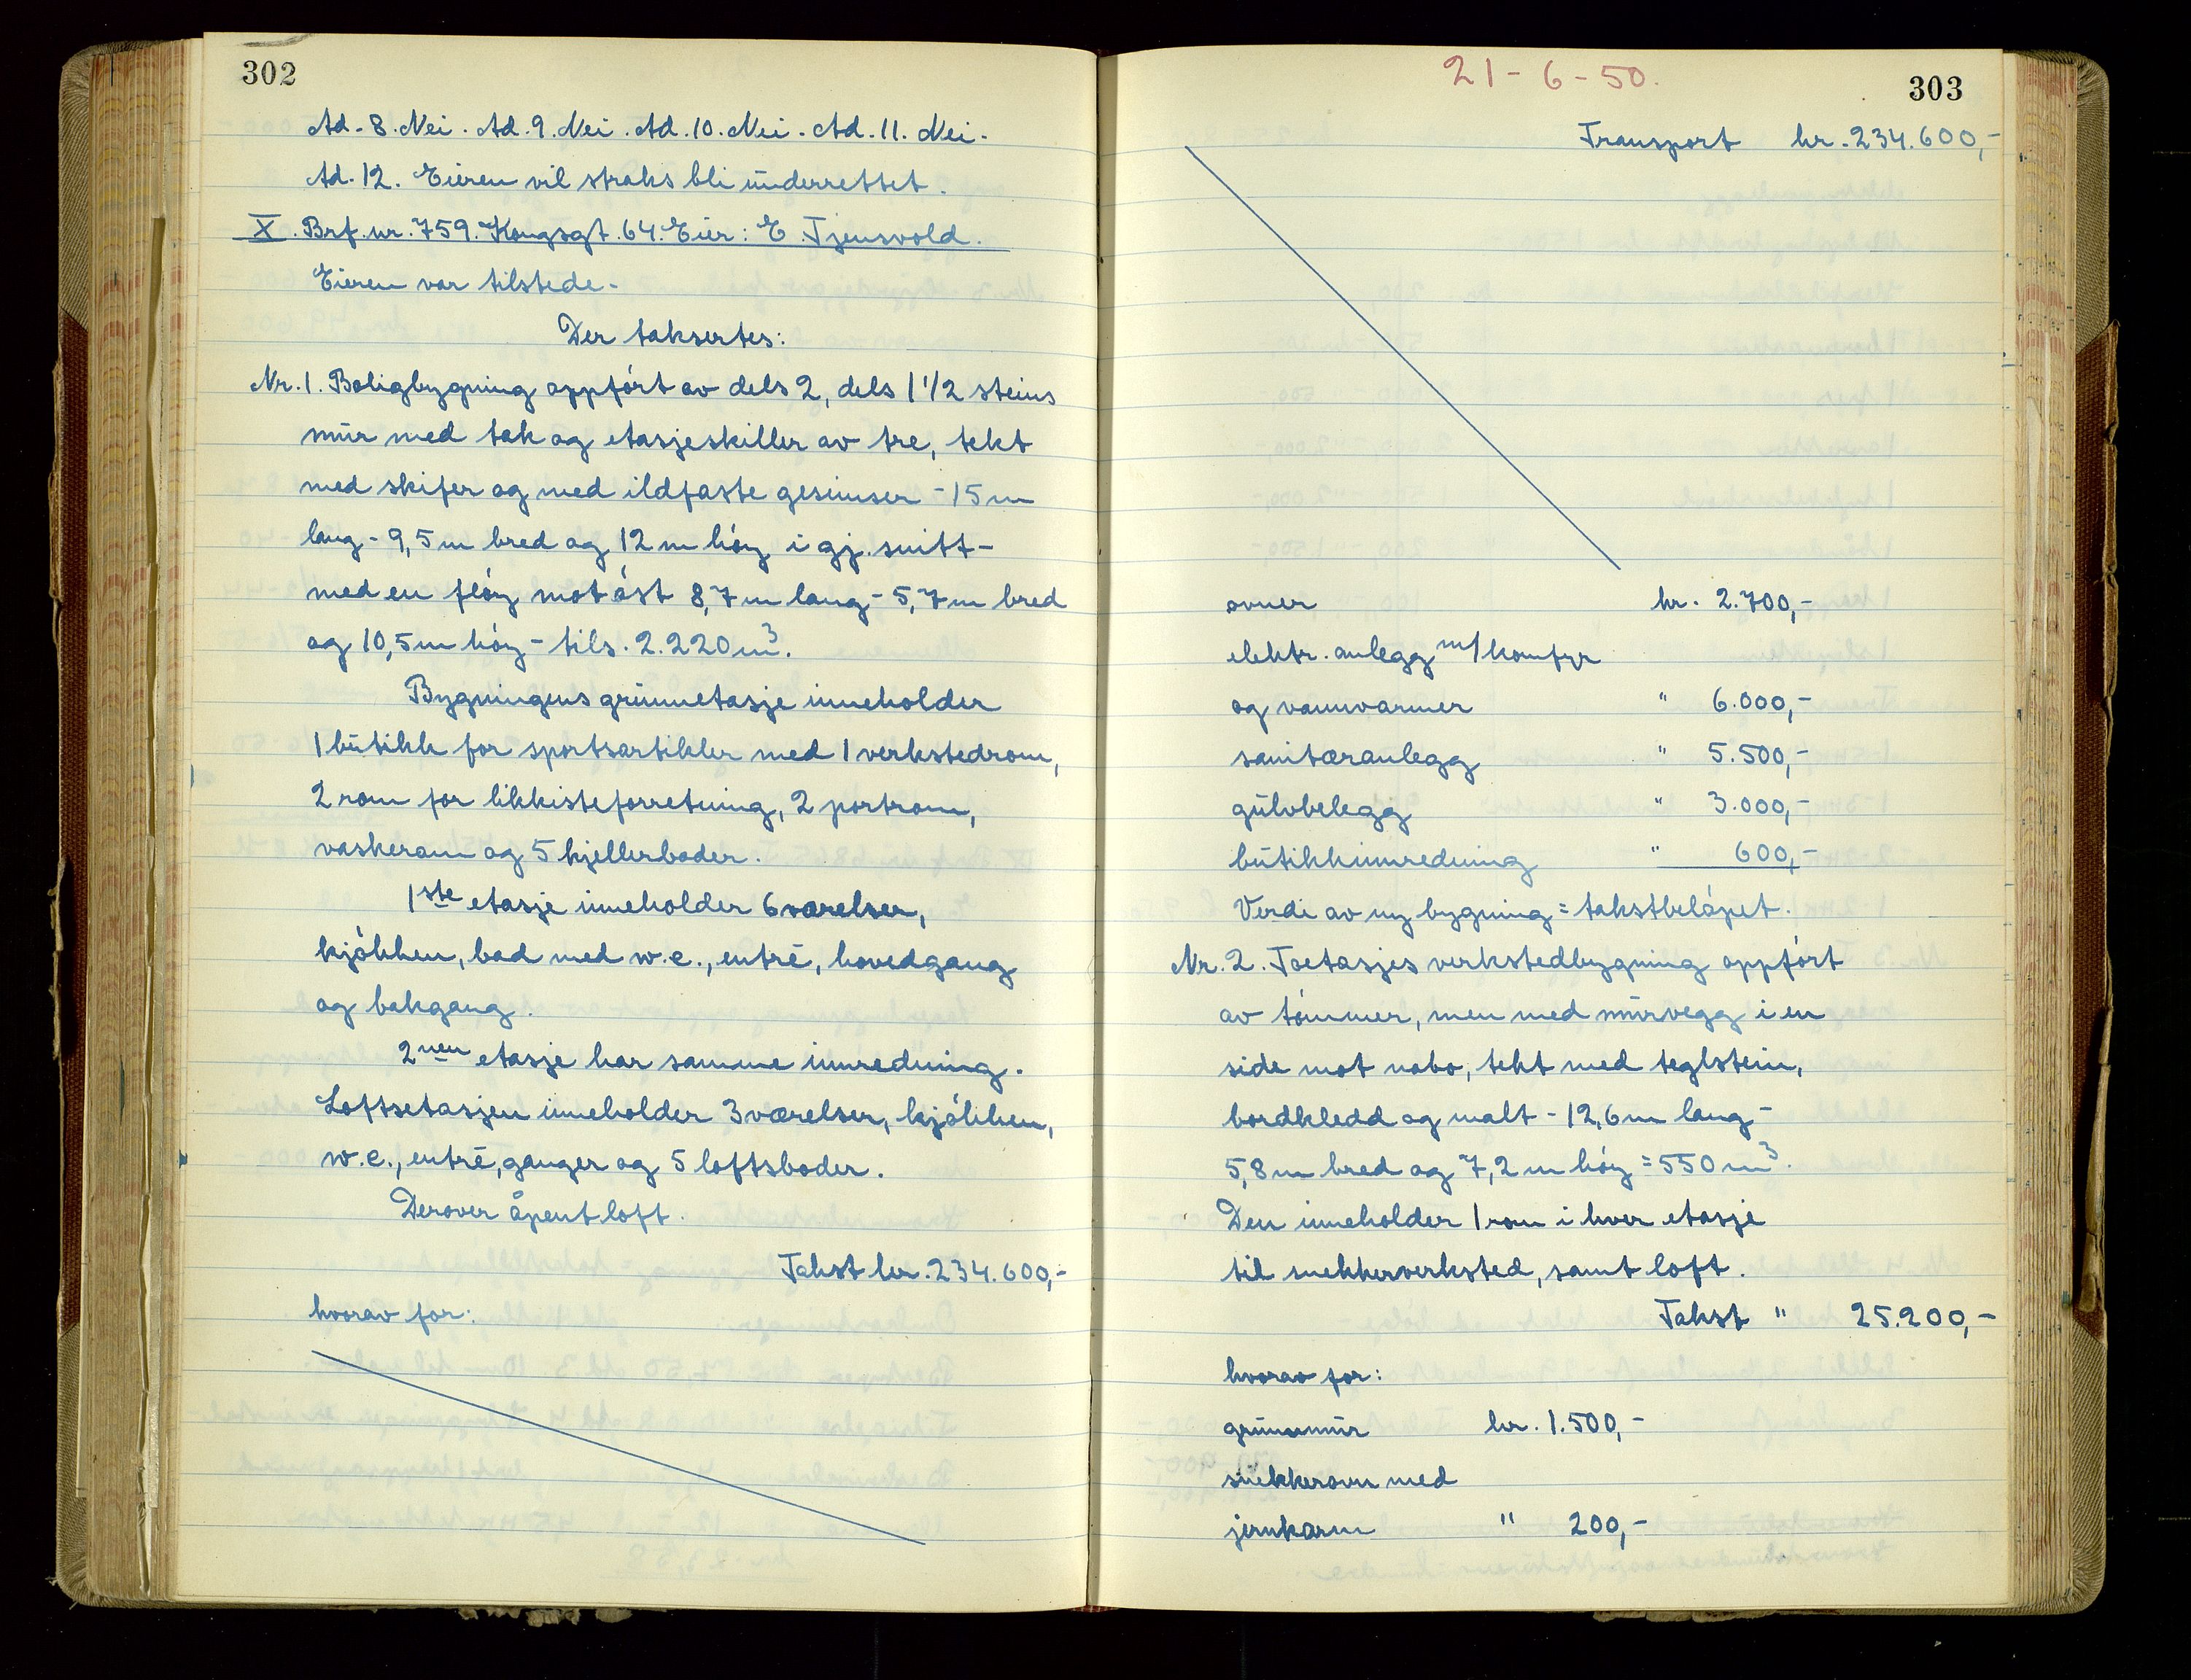 302
Ad. 8. Nei. Ad. 9. Nei. Ad. 10. Nei. Ad. 11. Nei.
Ad. 12. Eieren vil straks bli underrettet.
X. Brf. nr. 759. Kongsgt. 64. Eier: E. Tjensvold.
Eieren var tilstede.
Der taksertes:
Nr. 1. Boligbygning oppført av dels 2, dels 1 1/2 steins
mur med tak og etasjeskiller av tre, tekt
med skifer og med ildfaste gesimser - 15 m
lang - 9,5 m bred og 12 m høy i gj. snitt -
med en fløy mot øst 8,7 m lang - 5,7 m bred
og 10,5 m høy - tils. 2.220 m³.
Bygningens grunnetasje inneholder
1 butikk for sportsartikler med 1 verkstedrom,
2 rom for likkisteforretning, 2 portrom,
vaskerom og 5 kjellerboder.
1ste etasje inneholder 6 værelser,
kjøkken, bad med w.c., entré, hovedgang
og bakgang.
2nen etasje har samme innredning.
Loftsetasjen inneholder 3 værelser, kjøkken,
w.c., entré, ganger og 5 loftsboder.
Derover åpent loft.
Takst kr. 234.600,-
hvorav for:
21-6-50.
303
Transport kr. 234.600,-
ovner kr. 2.700,-
elektr. anlegg m/komfyr
og vannvarmer " 6.000,-
sanitæranlegg " 5.500,-
gulvbelegg " 3.000,-
butikkinnredning " 600,-
Verdi av ny bygning = takstbeløpet.
Nr. 2. Toetasjes verkstedbygning oppført
av tømmer, men med murvegg i en
side mot nabo, tekt med teglstein,
bordkledd og malt - 12,6 m lang -
5,8 m bred og 7,2 m høy = 550 m³.
Den inneholder 1 rom i hver etasje
til snekkerverksted, samt loft.
Takst " 25.200,-
hvorav for:
grunnmur kr. 1.500,-
snekkerovn med
jernkarm " 200,-